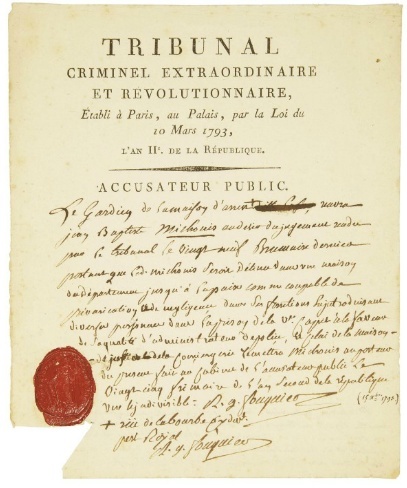 TRIBUNAL
CRIMINEL EXTRAORDINAIRE
ET RÉVOLUTIONNAIRE,
Établi à Paris, au Palais, par la Loi du
10 Mars 1793,
L'AN IIe. DE LA RÉPUBLIQUE.
ACCUSATEUR PUBLIC.
Le Gardien de la maison d'arrêt
jean Baptiste Michonis au desir du jugement rendu
par le tribunal le vingt neuf Brumaire dernier
portant que led. Michonis seroit détenu dans une maison
du département jusqu'à la paix comme coupable de
et de negligence dans ses fonctions
diverses personnes dans la prison de la Ve Capet à la faveur
de sa qualité d'administrateur de police, et celui de la maison
de la Conciergerie remettra Michonis au porteur
du present fait au Cabinet de l'accusateur public Le
Vingt-cinq frimaire de l'an Second de la république
une et indivisible. A. q. fouquier
(15 Xbre 1793)
A. q. fouquier